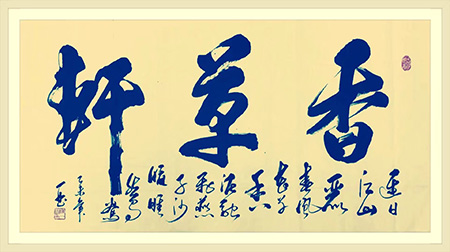 香草軒
遲日
江山
麗
春風
花草
香
泥融
飛燕
子沙
暖睡
鴛鴦
乙未年